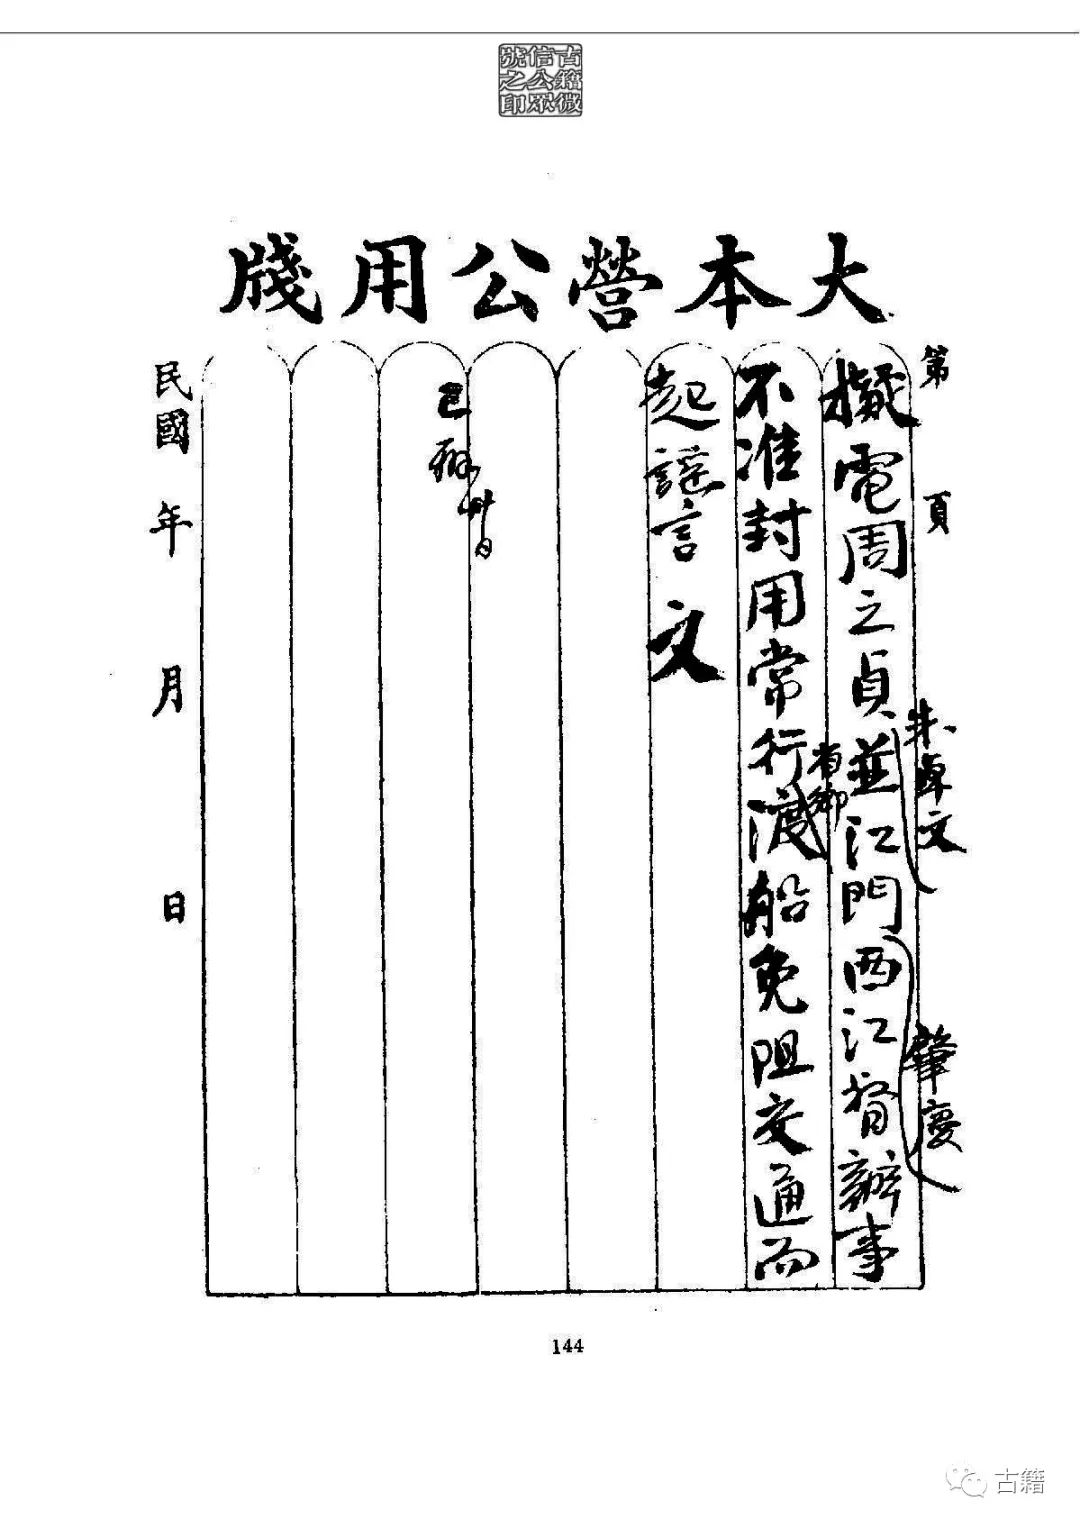 古籍微
信公眾
號之印
大本營公用牋
第 頁
朱卓文
肇慶
擬電周之貞並江門西江督辦事
省鄉
不准封用常行渡船免阻交通而
起謠言 文
卅日
已辦
民國 年 月 日
144
古籍